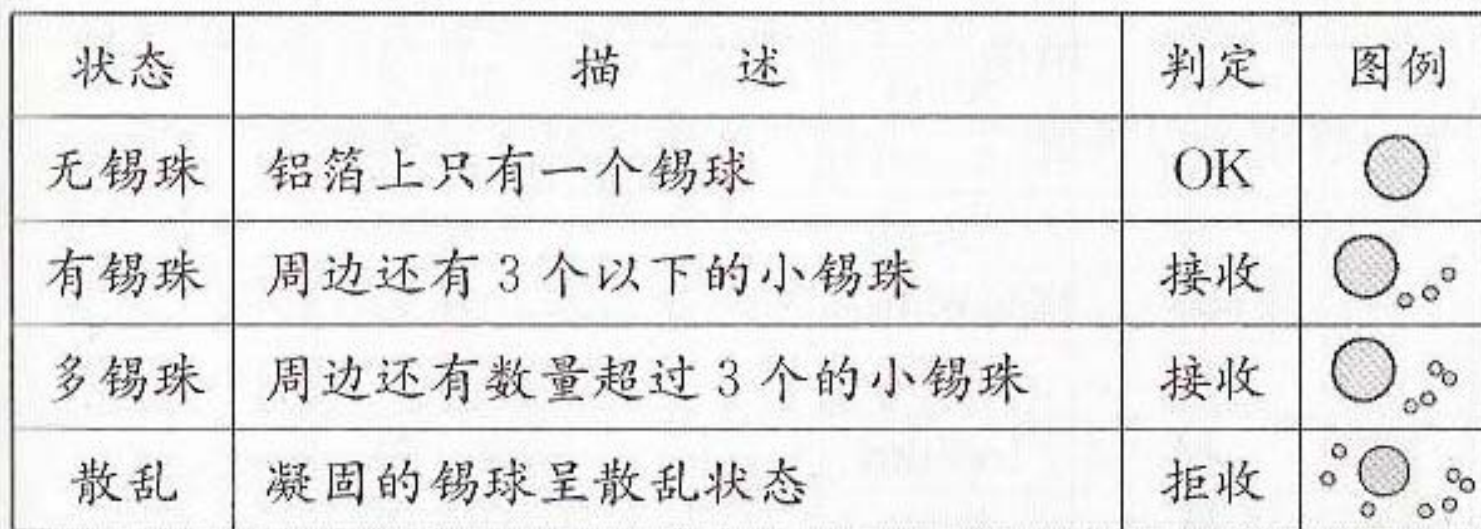 状态 描述 判定 图例
无锡珠 铝箔上只有一个锡球 OK
有锡珠 周边还有3个以下的小锡珠 接收
多锡珠 周边还有数量超过3个的小锡珠 接收
散乱 凝固的锡球呈散乱状态 拒收